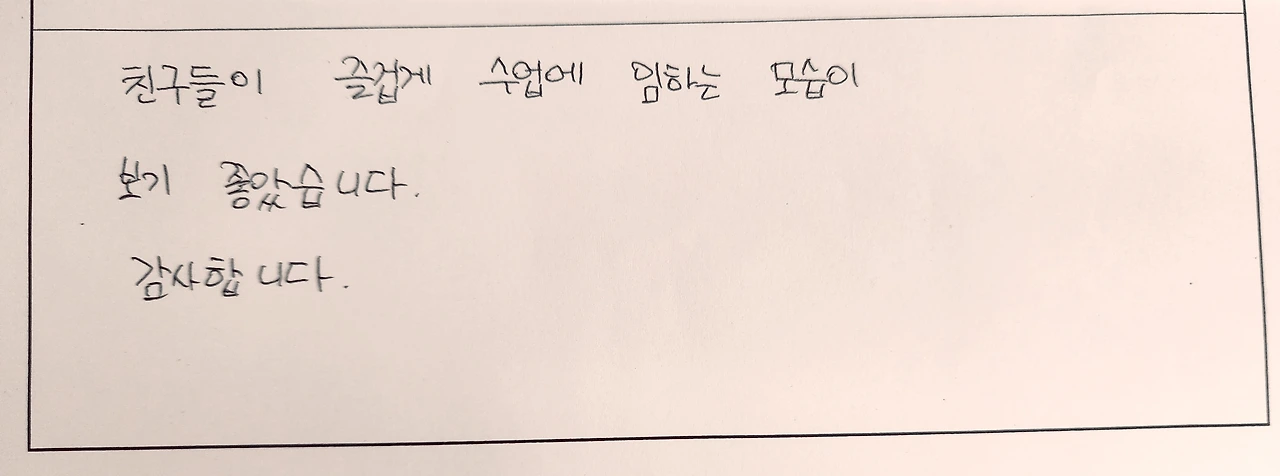 친구들이 즐겁게 수업에 임하는 모습이
보기 좋았습니다.
감사합니다.